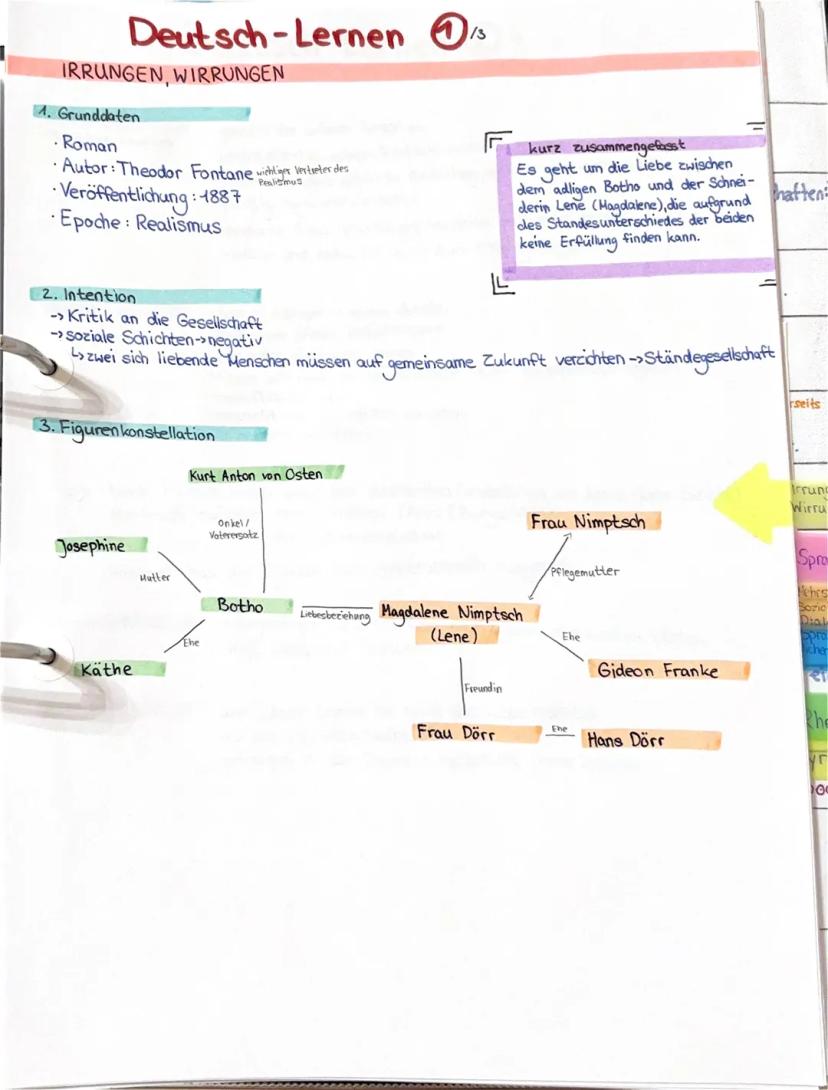 Deutsch-Lernen 1/3
IRRUNGEN, WIRRUNGEN
1. Grunddaten
· Roman
· Autor: Theodor Fontane wichtiger Vertreter des
Realismus
· Veröffentlichung: 1887
· Epoche: Realismus
kurz zusammengefasst
Es geht um die Liebe zwischen
dem adligen Botho und der Schnei-
derin Lene (Magdalene), die aufgrund
des Standesunterschiedes der beiden
keine Erfüllung finden kann.
2. Intention
-> Kritik an die Gesellschaft
-> soziale Schichten -> negativ
↳ zwei sich liebende Menschen müssen auf gemeinsame Zukunft verzichten -> Ständegesellschaft
3. Figurenkonstellation
Kurt Anton von Osten
Onkel /
Vaterersatz
Frau Nimptsch
Josephine
Mutter
Pflegemutter
Botho
Liebesbeziehung
Magdalene Nimptsch
(Lene)
Ehe
Ehe
Käthe
Gideon Franke
Freundin
Frau Dörr
Ehe
Hans Dörr
haften:
rseits
Irrung
Wirru
Spra